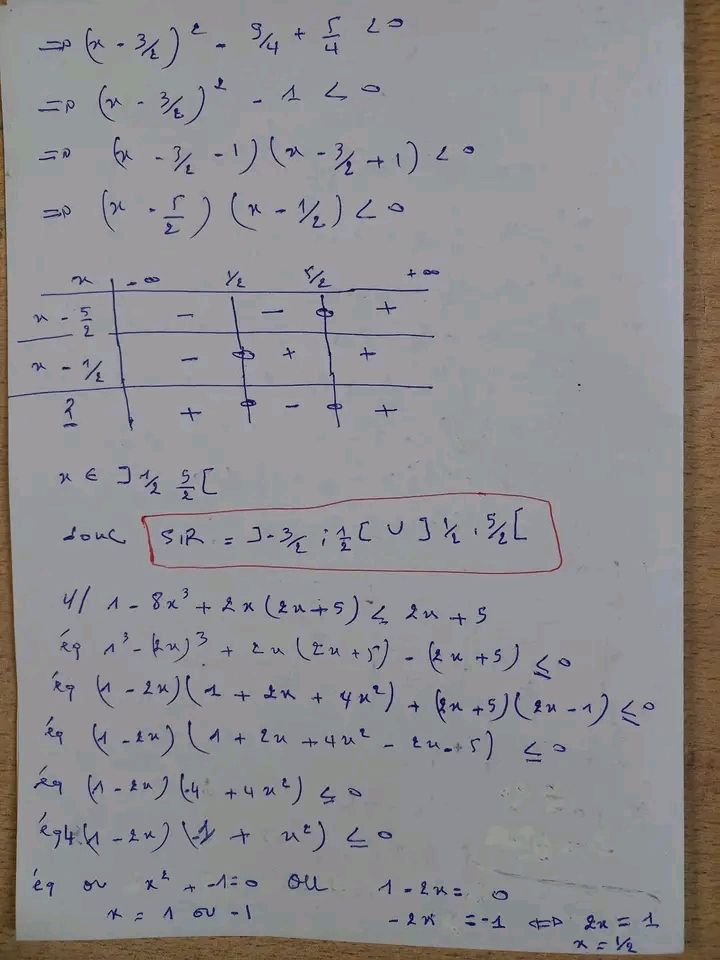 => (x - 3/2)² - 9/4 + 5/4 < 0
=> (x - 3/2)² - 1 < 0
=> (x - 3/2 - 1) (x - 3/2 + 1) < 0
=> (x - 5/2) (x - 1/2) < 0
x | -∞ 1/2 5/2 +∞
x - 5/2 | - | - 0 +
x - 1/2 | - 0 + | +
P | + 0 - 0 +
x ∈ ]1/2 5/2[
donc SIR = ]-3/2 ; 1/2[ ∪ ]1/2 , 5/2[
4/ 1 - 8x³ + 2x(2x+5) ≤ 2x + 5
éq 1³ - (2x)³ + 2x(2x+5) - (2x+5) ≤ 0
éq (1 - 2x)(1 + 2x + 4x²) + (2x+5)(2x-1) ≤ 0
éq (1 - 2x) (1 + 2x + 4x² - 2x - 5) ≤ 0
éq (1 - 2x) (-4 + 4x²) ≤ 0
éq 4(1 - 2x) (-1 + x²) ≤ 0
éq or x² + -1 = 0 ou 1 - 2x = 0
x = 1 ou -1 -2x = -1 <=> 2x = 1
x = 1/2